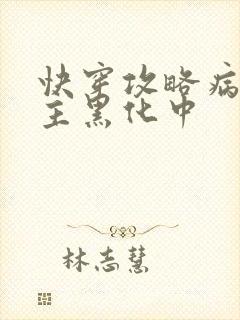 快穿攻略病
主黑化中
林志慧